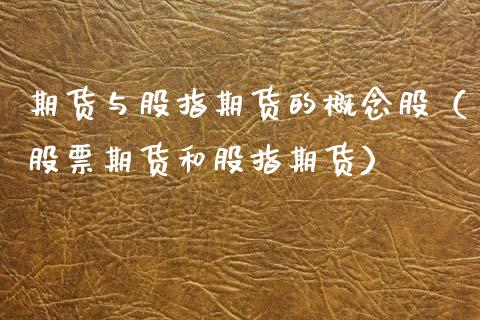 期货与股指期货的概念股（
股票期货和股指期货）